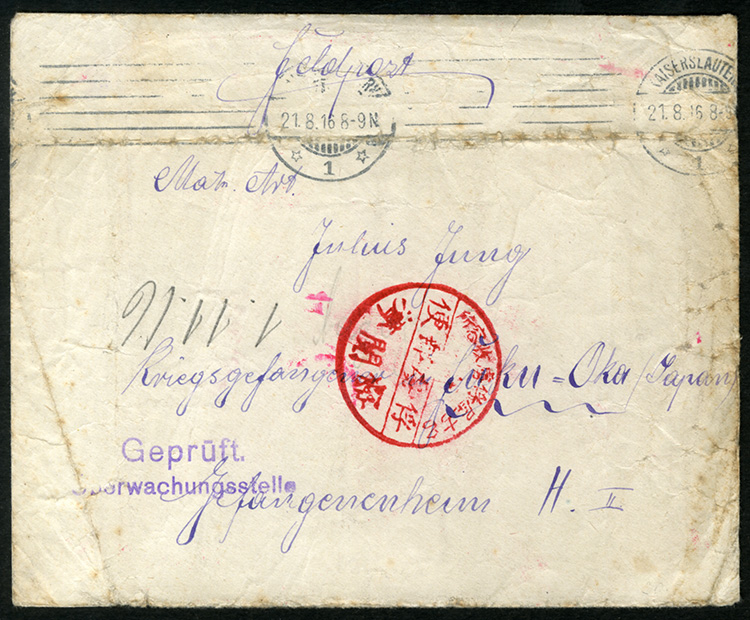 Feldpost
KAISERSLAUTERN
21.8.16 8-9N
1
KAISERSLAUTERN
21.8.16 8-9N
1
Matr. Art.
Julius Jung
1.11.16
Kriegsgefangener in Fuku=Oka (Japan)
俘虜郵便
検閲済
Geprüft.
Überwachungsstelle
Gefangenenheim H. II